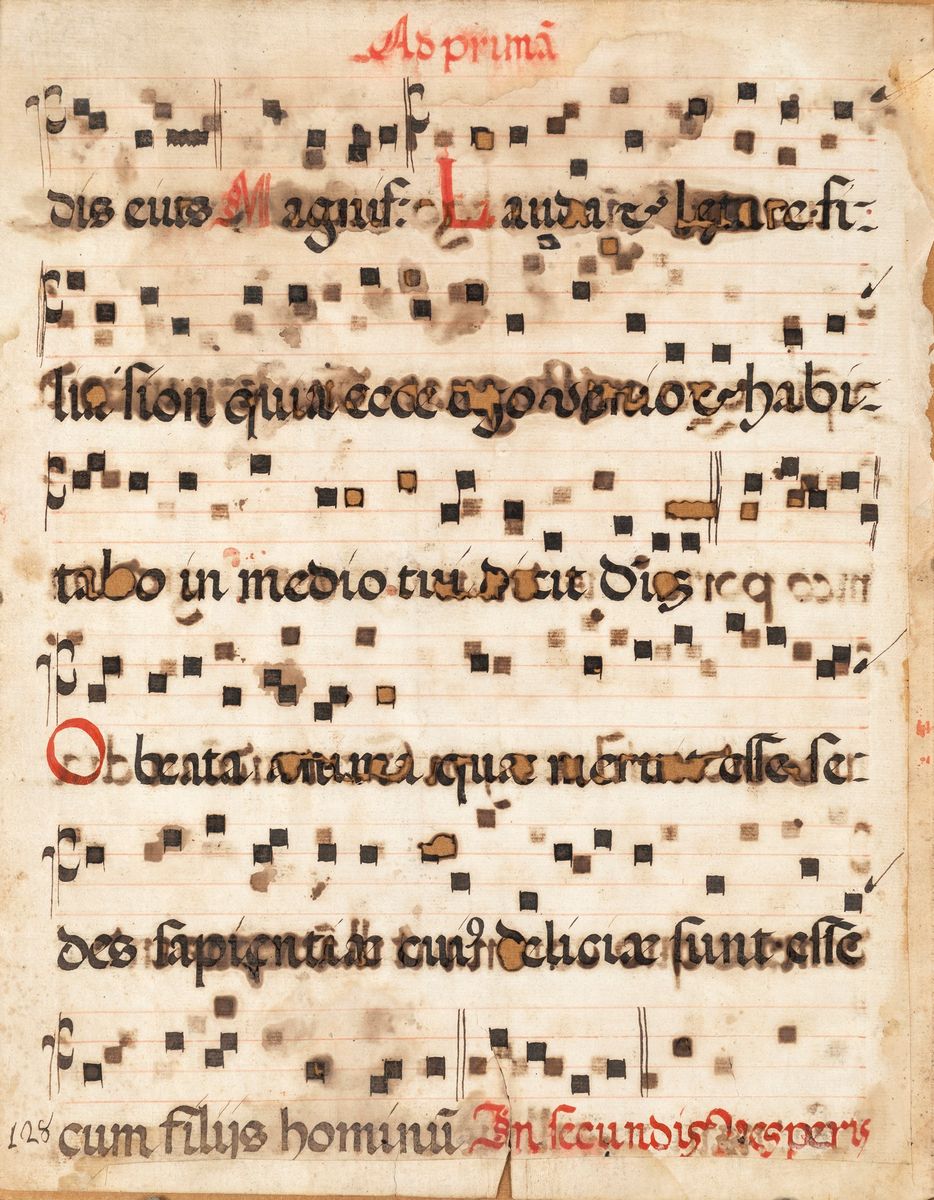 Ad primã
dis eius Magnif: Laudate & letare fi-
lia sion quia ecce ego venio & habi-
tabo in medio tui dicit Dñs
O beata anima quæ meruit esse se-
des sapientiæ cuiꝰ deliciæ sunt esse
128 cum filijs hominũ In secundis vesperis